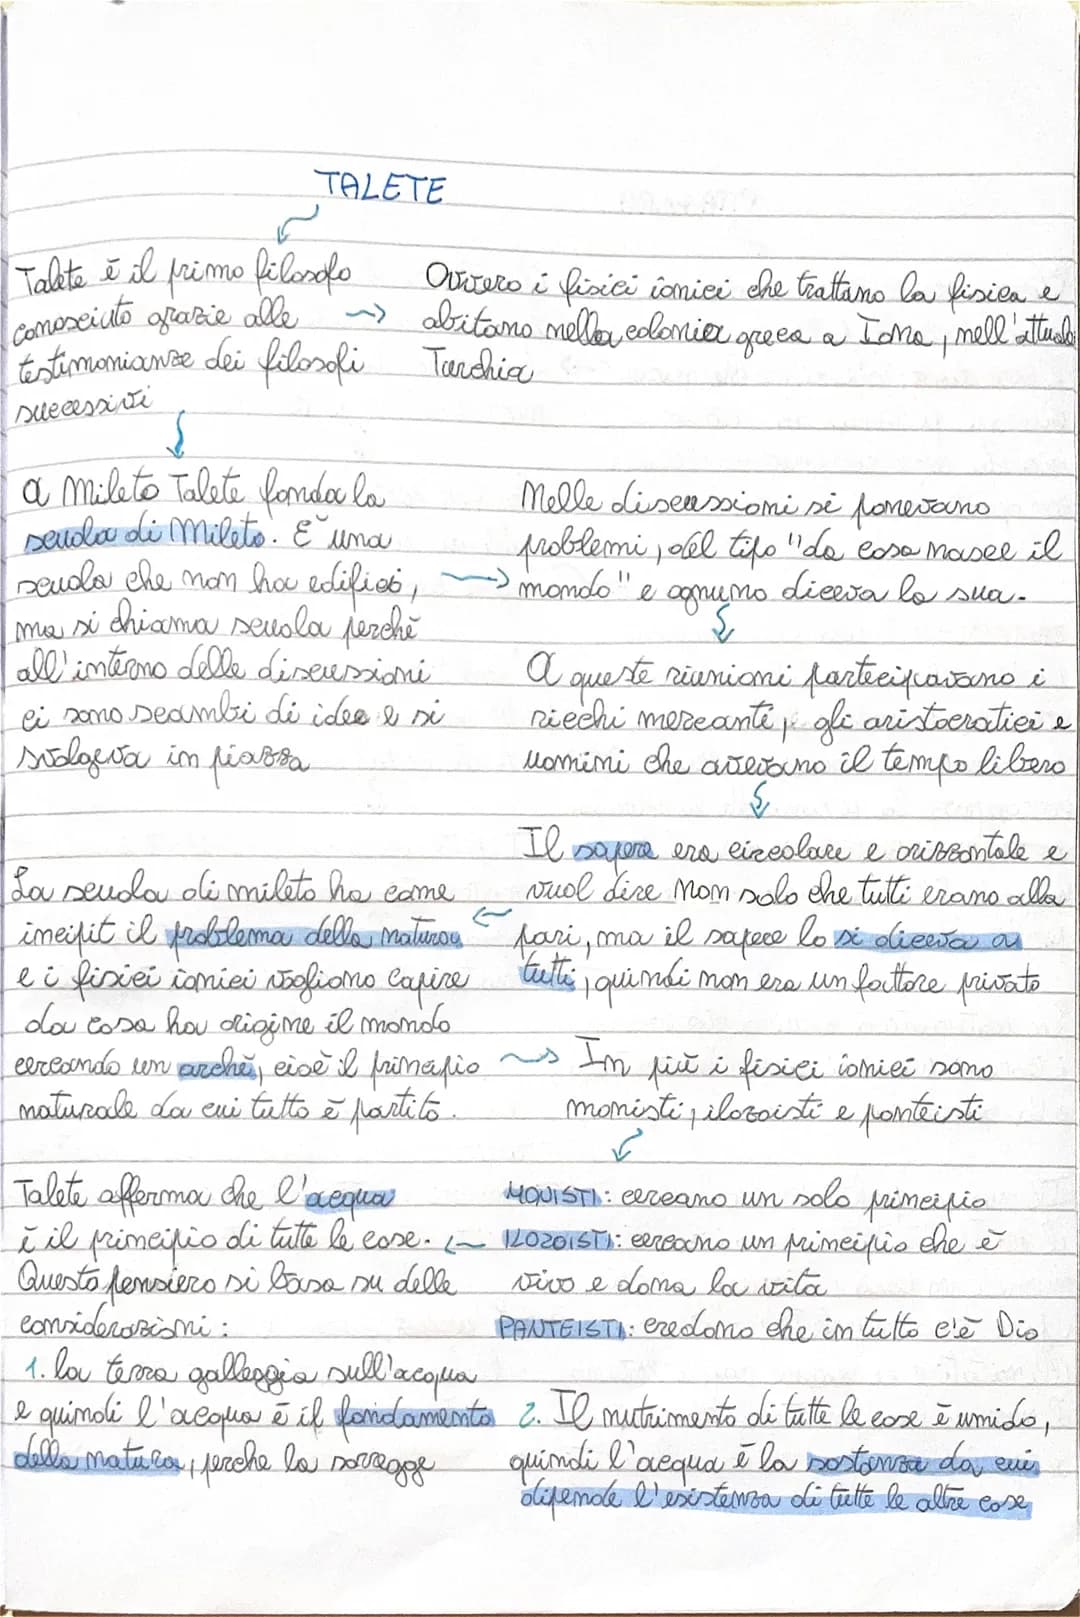 TALETE
Talete è il primo filosofo
conosciuto grazie alle
testimonianze dei filosofi
successivi
Ovvero i fisici ionici che trattano la fisica e
abitano nella colonia greca a Iona, nell'attuale
Turchia
a Mileto Talete fonda la
scuola di Mileto. E' una
scuola che non ha edifici,
ma si chiama scuola perchè
all'interno delle discussioni
ci sono scambi di idee e si
svolgeva in piazza
Nelle discussioni si ponevano
problemi, del tipo "da cosa nasce il
mondo" e ognuno diceva la sua.
A queste riunioni partecipavano i
ricchi mercanti, gli aristocratici e
uomini che avevano il tempo libero
Il sapere era circolare e orizzontale e
vuol dire non solo che tutti erano alla
pari, ma il sapere lo si diceva a
tutti, quindi non era un fattore privato
La scuola di mileto ha come
incipit il problema della natura
e i fisici ionici vogliono capire
da cosa ha origine il mondo
cercando un archè, cioè il principio
naturale da cui tutto è partito.
In più i fisici ionici sono
monisti, ilozoisti e panteisti
MONISTI: cercano un solo principio
ILOZOISTI: cercano un principio che è
vivo e dona la vita
PANTEISTI: credono che in tutto c'è Dio
Talete afferma che l'acqua
è il principio di tutte le cose.
Questo pensiero si basa su delle
considerazioni:
1. la terra galleggia sull'acqua
e quindi l'acqua è il fondamento
della natura, perche la sorregge
2. Il nutrimento di tutte le cose è umido,
quindi l'acqua è la sostanza da cui
dipende l'esistenza di tutte le altre cose